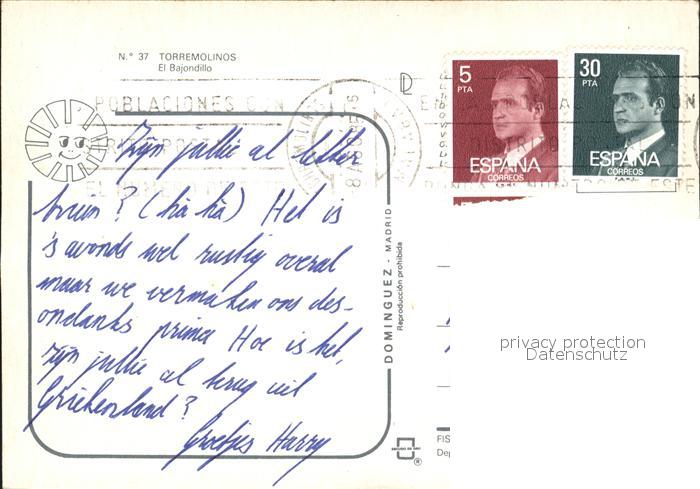 N.º 37 TORREMOLINOS
El Bajondillo
POBLACIONES CON
5
PTA
ESPAÑA
CORREOS
30
PTA
ESPAÑA
CORREOS
Zijn jullie al lekker
bruin? (hà hà) Het is
's avonds wel rustig overal
maar we vermaken ons des-
ondanks prima Hoe is het,
zijn jullie al terug uit
Griekenland?
Groetjes Harry
DOMINGUEZ - MADRID
Reproducción prohibida
privacy protection
Datenschutz
ESCUDO DE ORO
®
FIS
Dep